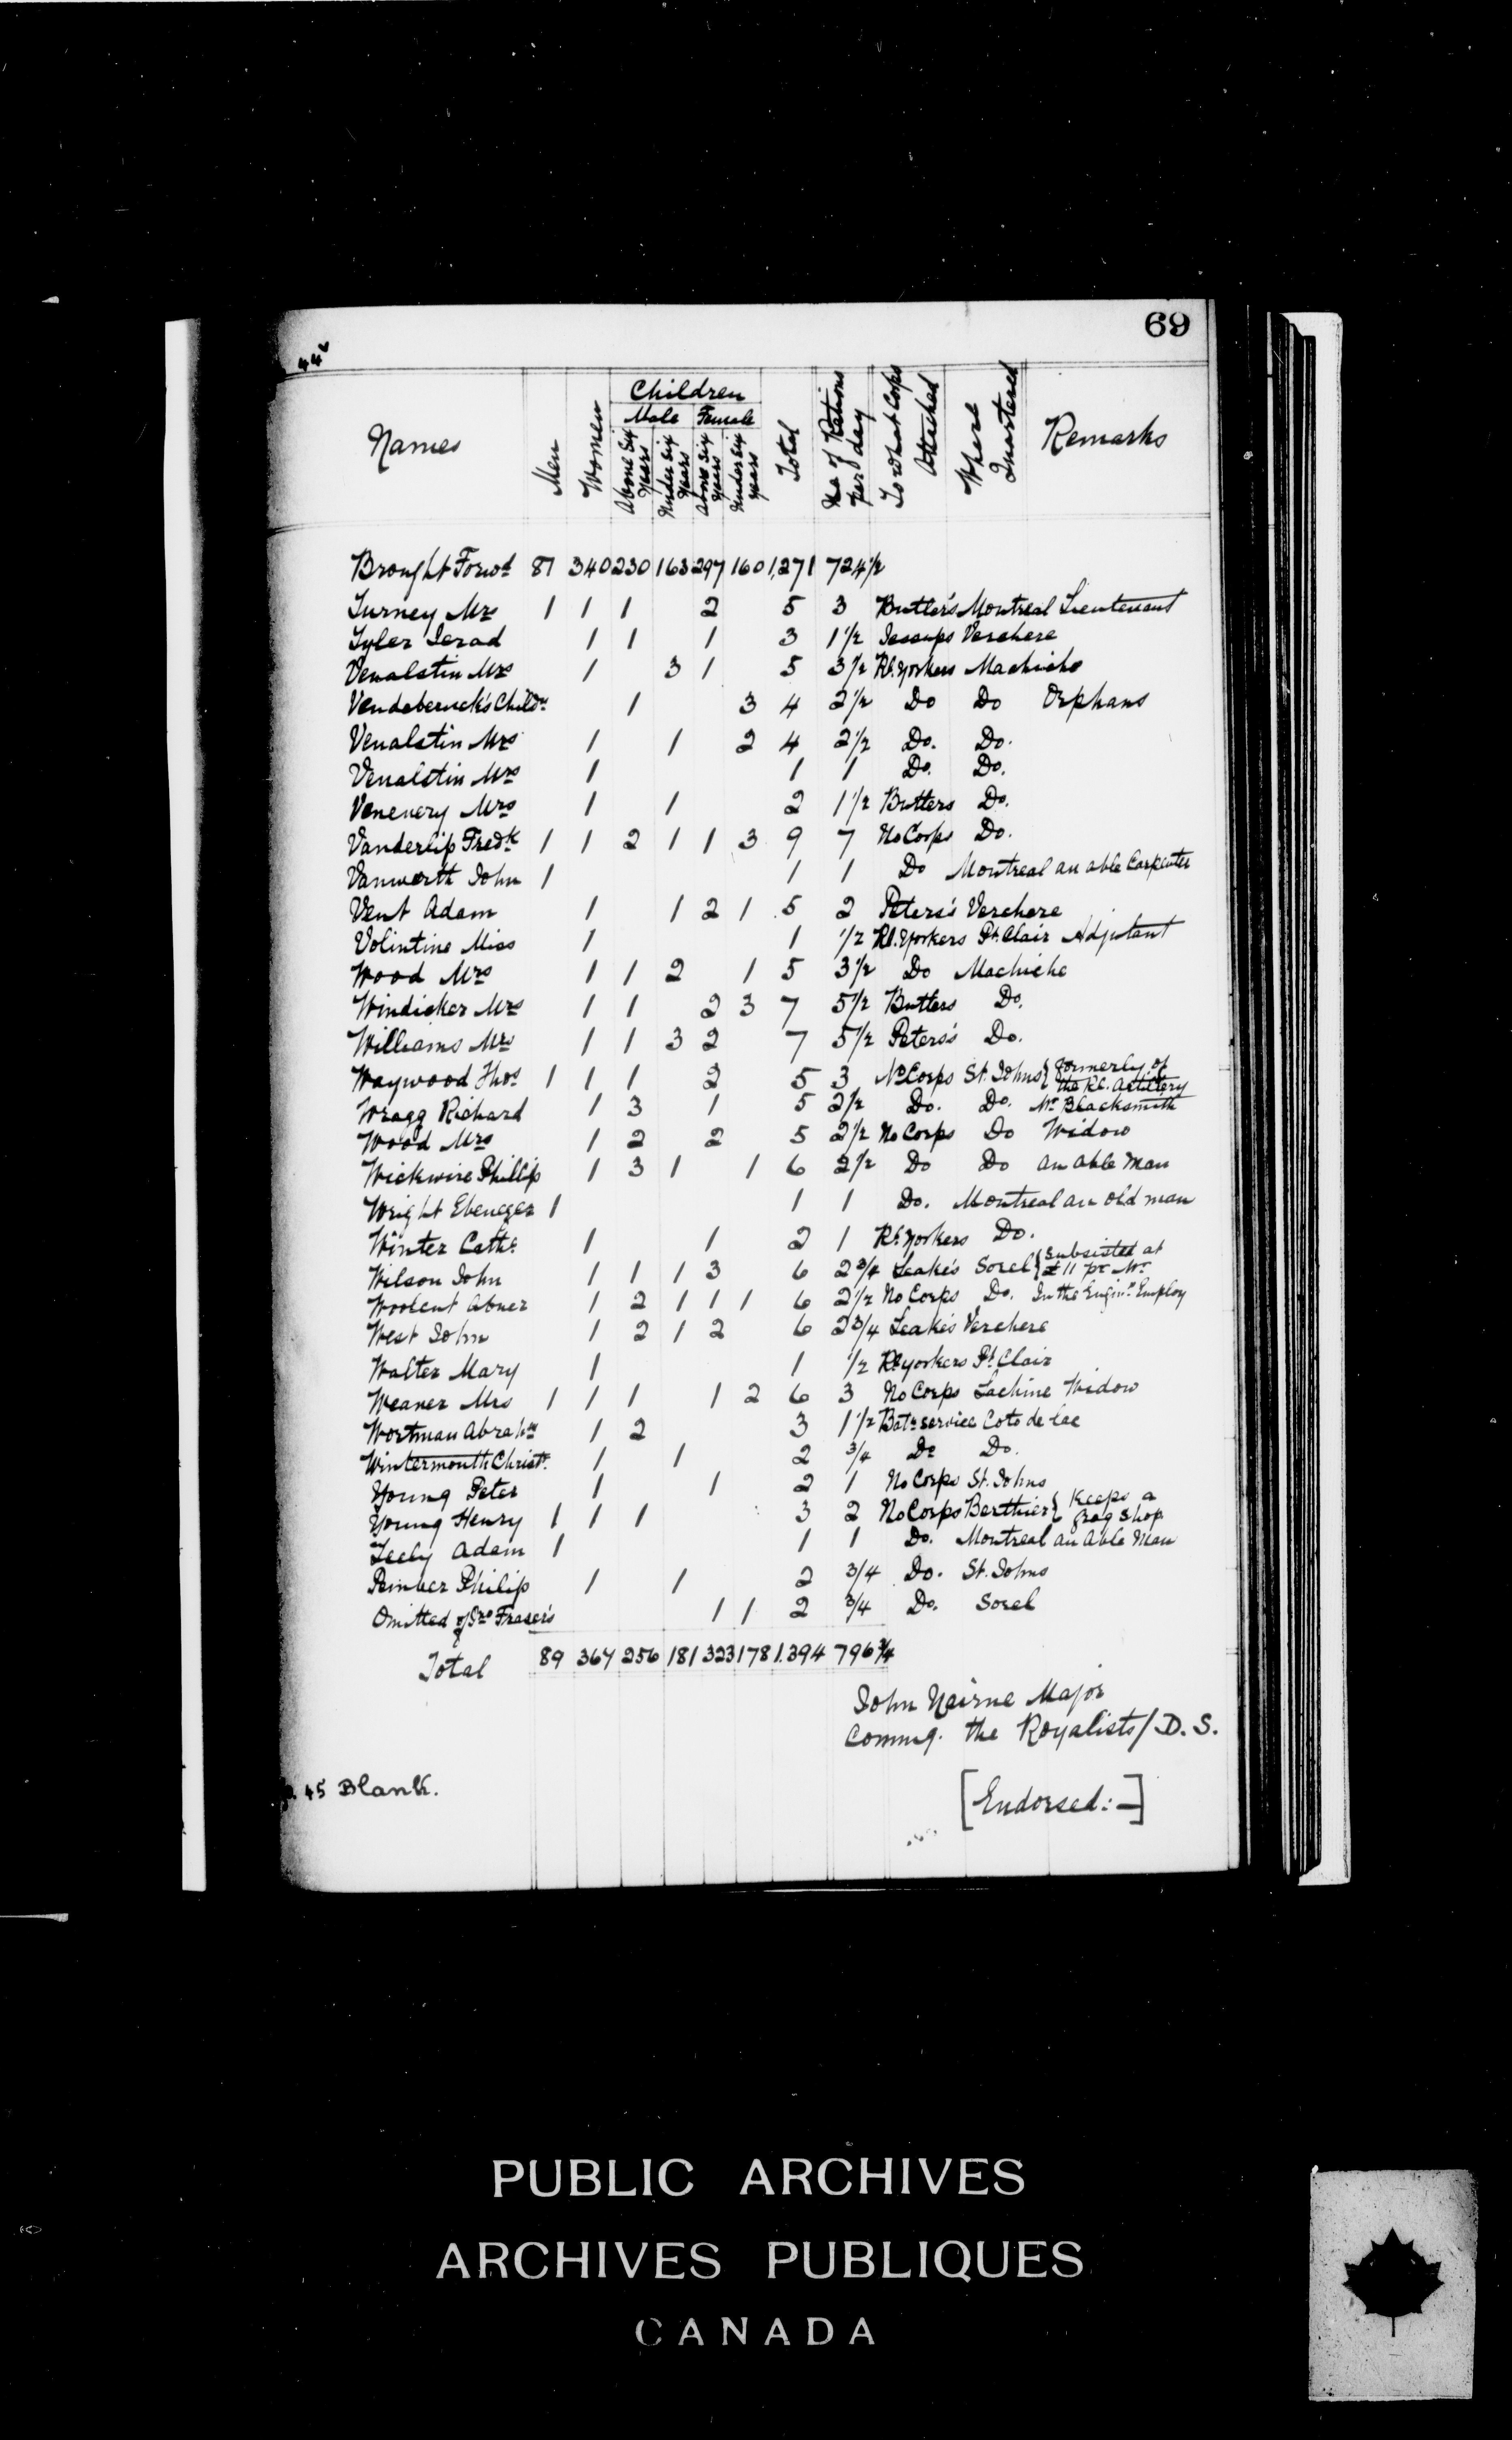 69
44v
Names Men Women Children Male Above Six Years Under Six Years Female Above Six Years Under Six Years Total No of Rations per day To what Corps Attached Where Quartered Remarks
Brought Forwd 81 340 230 163 297 160 1,271 724 1/2
Turney Mrs 1 1 1 2 5 3 Butler's Montreal Lieutenant
Tyler Jerad 1 1 1 3 1 1/2 Jessups Verchere
Venalstin Mrs 1 3 1 5 3 1/2 Rl. Yorkers Machiche
Vendeberuck's Childn 1 3 4 2 1/2 Do Do Orphans
Venalstin Mrs 1 1 2 4 2 1/2 Do. Do.
Venalstin Mrs 1 1 1 Do. Do.
Venevery Mrs 1 1 2 1 1/2 Butlers Do.
Vanderlip Fredk 1 1 2 1 1 3 9 7 No Corps Do.
Vanworth John 1 1 1 Do Montreal an able Carpenter
Vent Adam 1 1 2 1 5 2 Peters's Verchere
Volintine Miss 1 1 1/2 Rl. Yorkers Pt. Clair Adjutant
Wood Mrs 1 1 2 1 5 3 1/2 Do Machiche
Windicker Mrs 1 1 2 3 7 5 1/2 Butlers Do.
Williams Mrs 1 1 3 2 7 5 1/2 Peters's Do.
Waywood Thos 1 1 1 2 5 3 No Corps St. Johns { formerly of the Rl. Artillery
Wragg Richard 1 3 1 5 2 1/2 Do. Do. Mr Blacksmith
Wood Mrs 1 2 2 5 2 1/2 No Corps Do Widow
Wickwire Phillip 1 3 1 1 6 2 1/2 Do Do an able man
Wright Ebenezer 1 1 1 Do. Montreal an old man
Winter Cathe 1 1 2 1 Rl. Yorkers Do.
Wilson John 1 1 1 3 6 2 3/4 Leake's Sorel { subsisted at £11 pr Mr
Woolent Abner 1 2 1 1 1 6 2 1/2 No Corps Do. In the Enginrs Employ
West John 1 2 1 2 6 2 3/4 Leake's Verchere
Walter Mary 1 1 1/2 Rl Yorkers Pt. Clair
Weaver Mrs 1 1 1 1 2 6 3 No Corps Lachine Widow
Wortman Abrahm 1 2 3 1 1/2 Bat: service Coto de lac
Wintermouth Christr. 1 1 2 3/4 Do Do.
Young Peter 1 1 2 1 No Corps St. Johns
Young Henry 1 1 1 3 2 No Corps Berthier { Keeps a grog shop
Zeely Adam 1 1 1 Do. Montreal an Able Man
Philip 1 1 2 3/4 Do. St. Johns
Omitted of Fraser's 1 1 2 3/4 Do. Sorel
Total 89 367 256 181 323 178 1.394 796 3/4
John Nairne Major
Commg. the Royalists/D.S.
45 Blank.
[Endorsed:—]
PUBLIC ARCHIVES
ARCHIVES PUBLIQUES
CANADA